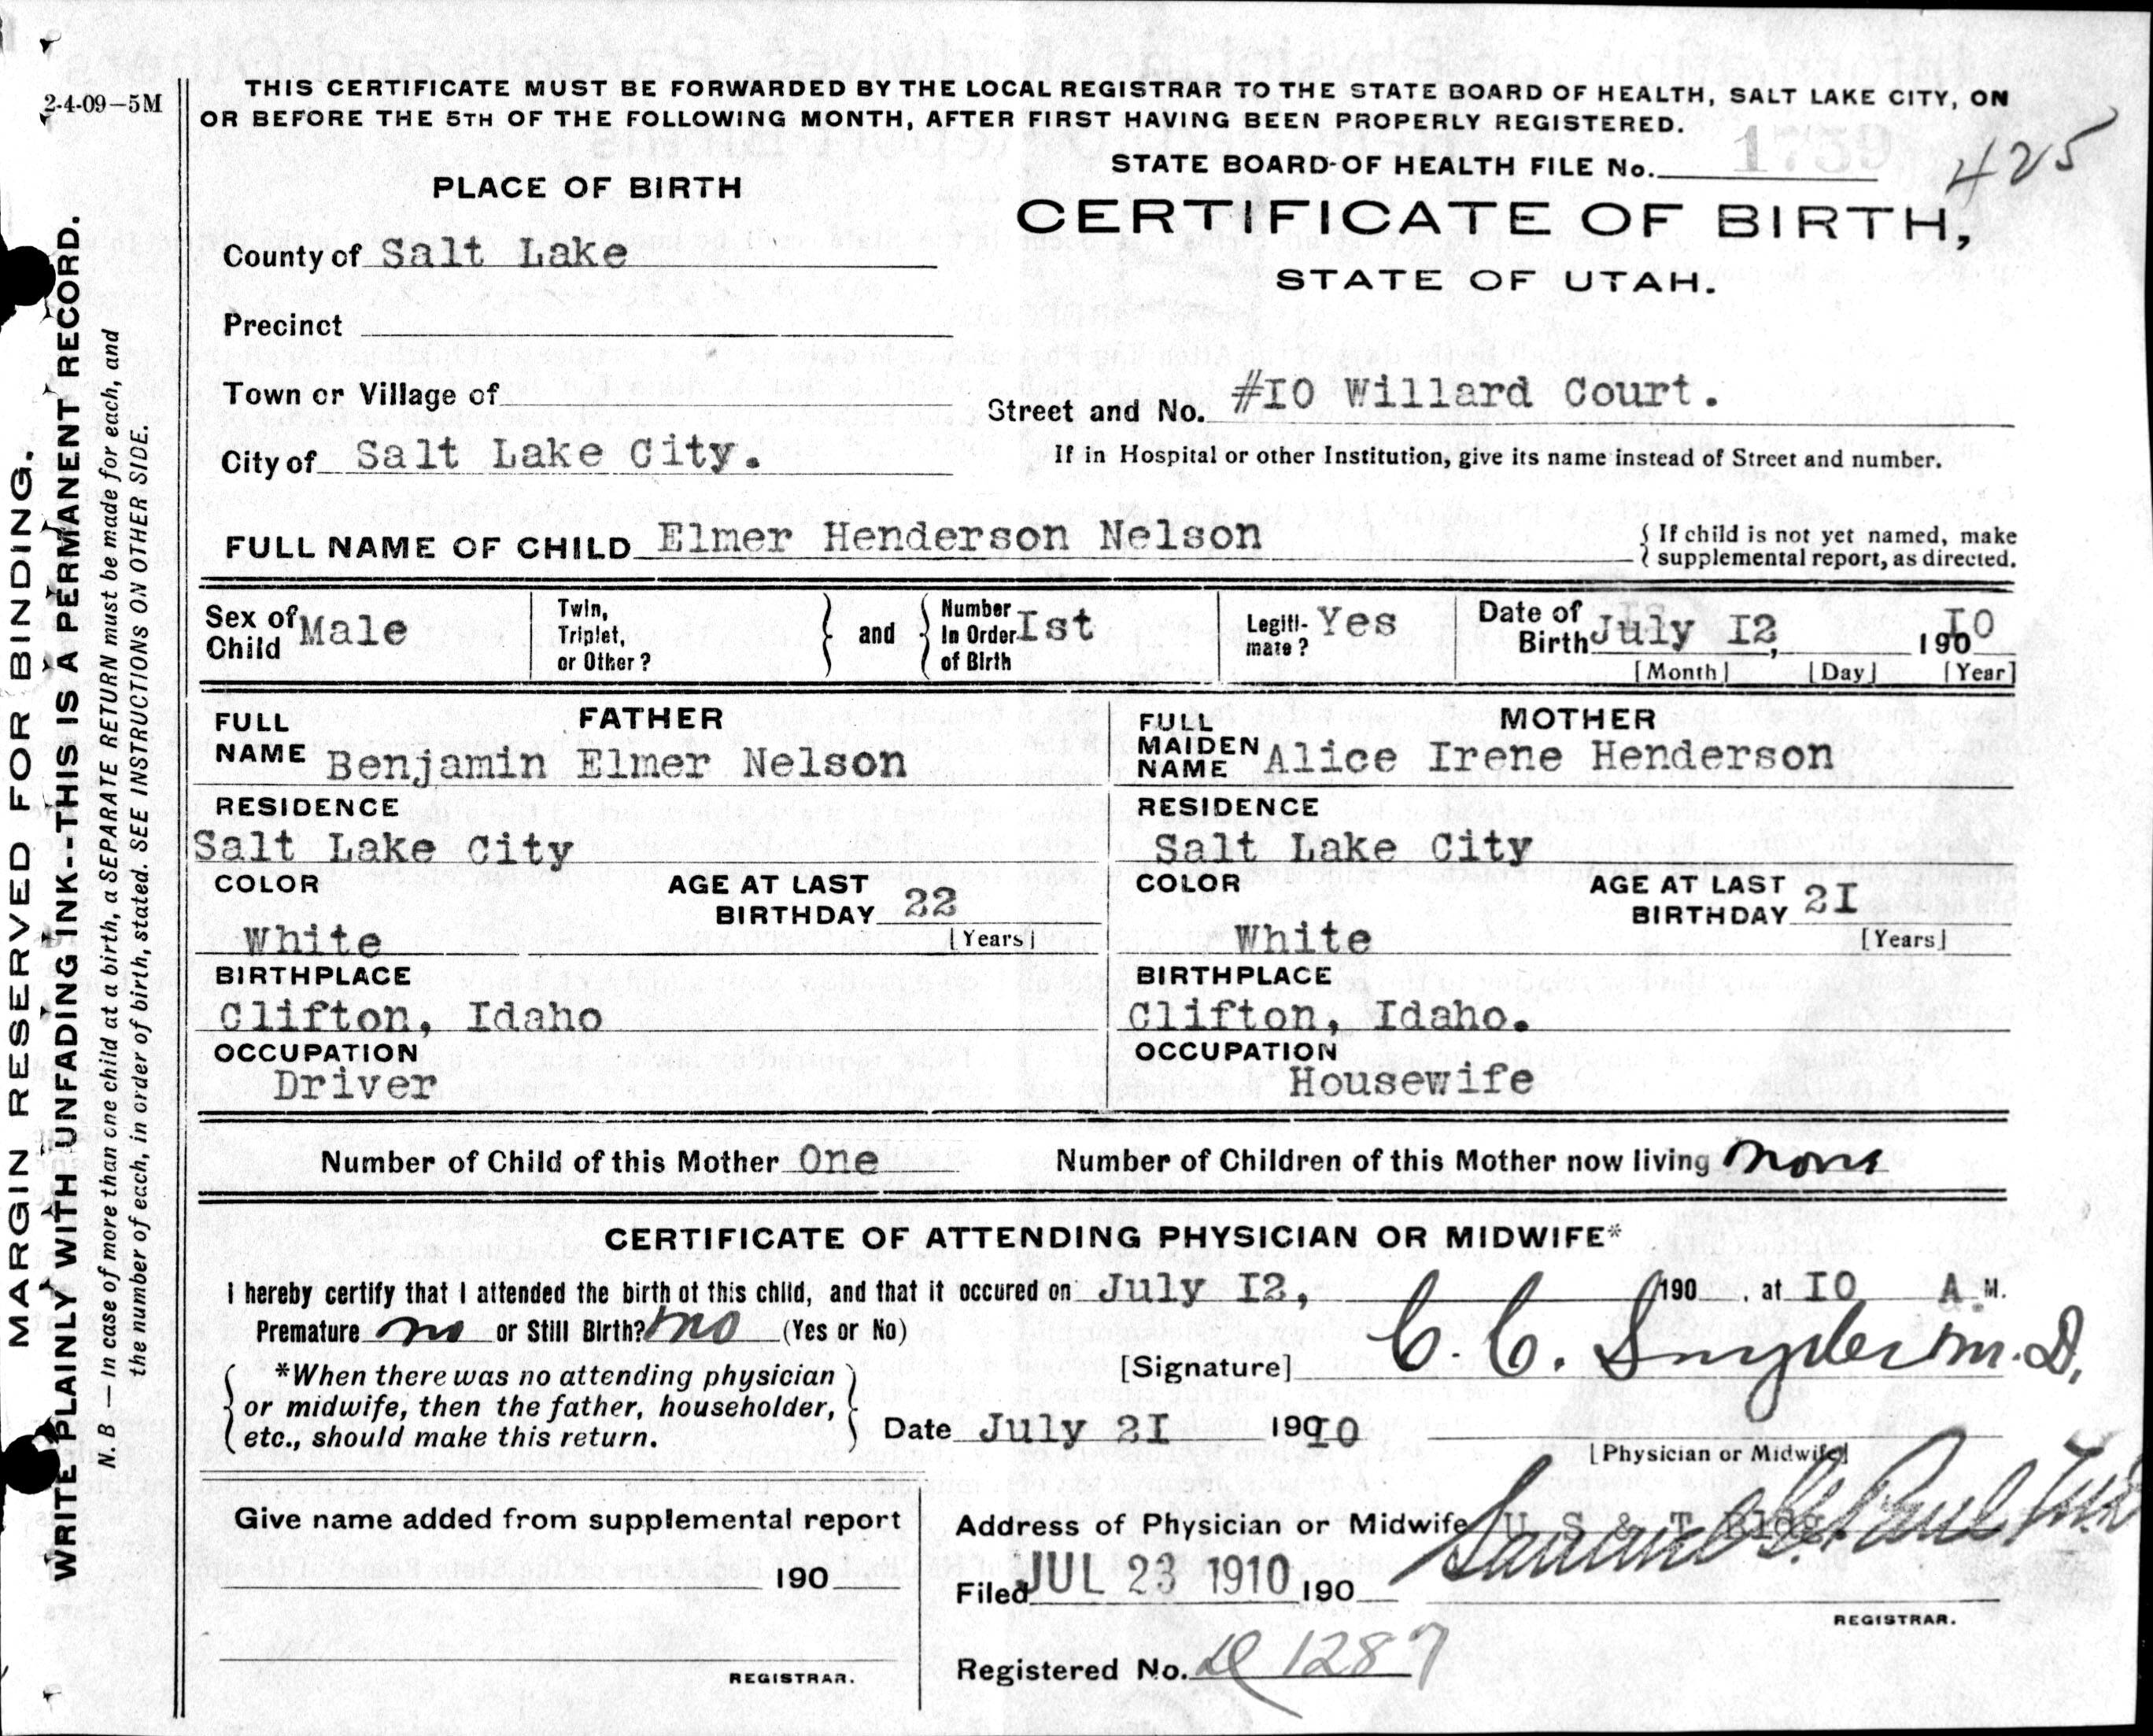 2-4-09—5M
THIS CERTIFICATE MUST BE FORWARDED BY THE LOCAL REGISTRAR TO THE STATE BOARD OF HEALTH, SALT LAKE CITY, ON
OR BEFORE THE 5TH OF THE FOLLOWING MONTH, AFTER FIRST HAVING BEEN PROPERLY REGISTERED.
STATE BOARD OF HEALTH FILE No. 1739 425
PLACE OF BIRTH
CERTIFICATE OF BIRTH,
STATE OF UTAH.
County of Salt Lake
Precinct
Town or Village of
Street and No. #I0 Willard Court.
City of Salt Lake City.
If in Hospital or other Institution, give its name instead of Street and number.
FULL NAME OF CHILD Elmer Henderson Nelson
{ If child is not yet named, make
supplemental report, as directed.
Sex of Child Male
Twin, Triplet, or Other?
and
Number In Order of Birth Ist
Legiti-mate? Yes
Date of Birth July I2, 190 I0
[Month] [Day] [Year]
FATHER
FULL NAME Benjamin Elmer Nelson
MOTHER
FULL MAIDEN NAME Alice Irene Henderson
RESIDENCE
Salt Lake City
RESIDENCE
Salt Lake City
COLOR
White
AGE AT LAST BIRTHDAY 22
[Years]
COLOR
White
AGE AT LAST BIRTHDAY 2I
[Years]
BIRTHPLACE
Clifton, Idaho
BIRTHPLACE
Clifton, Idaho.
OCCUPATION
Driver
OCCUPATION
Housewife
Number of Child of this Mother One
Number of Children of this Mother now living None
CERTIFICATE OF ATTENDING PHYSICIAN OR MIDWIFE*
I hereby certify that I attended the birth of this child, and that it occured on July I2, 190 , at I0 A. M.
Premature no or Still Birth? no (Yes or No)
[Signature] C. C. Snyder M. D.
*When there was no attending physician
or midwife, then the father, householder,
etc., should make this return.
Date July 2I 190I0
[Physician or Midwife]
Give name added from supplemental report
190
REGISTRAR.
Address of Physician or Midwife U S & T Bldg.
Filed JUL 23 1910 190
REGISTRAR.
Registered No. 1287
MARGIN RESERVED FOR BINDING.
WRITE PLAINLY WITH UNFADING INK--THIS IS A PERMANENT RECORD.
N. B.—In case of more than one child at a birth, a SEPARATE RETURN must be made for each, and
the number of each, in order of birth, stated. SEE INSTRUCTIONS ON OTHER SIDE.